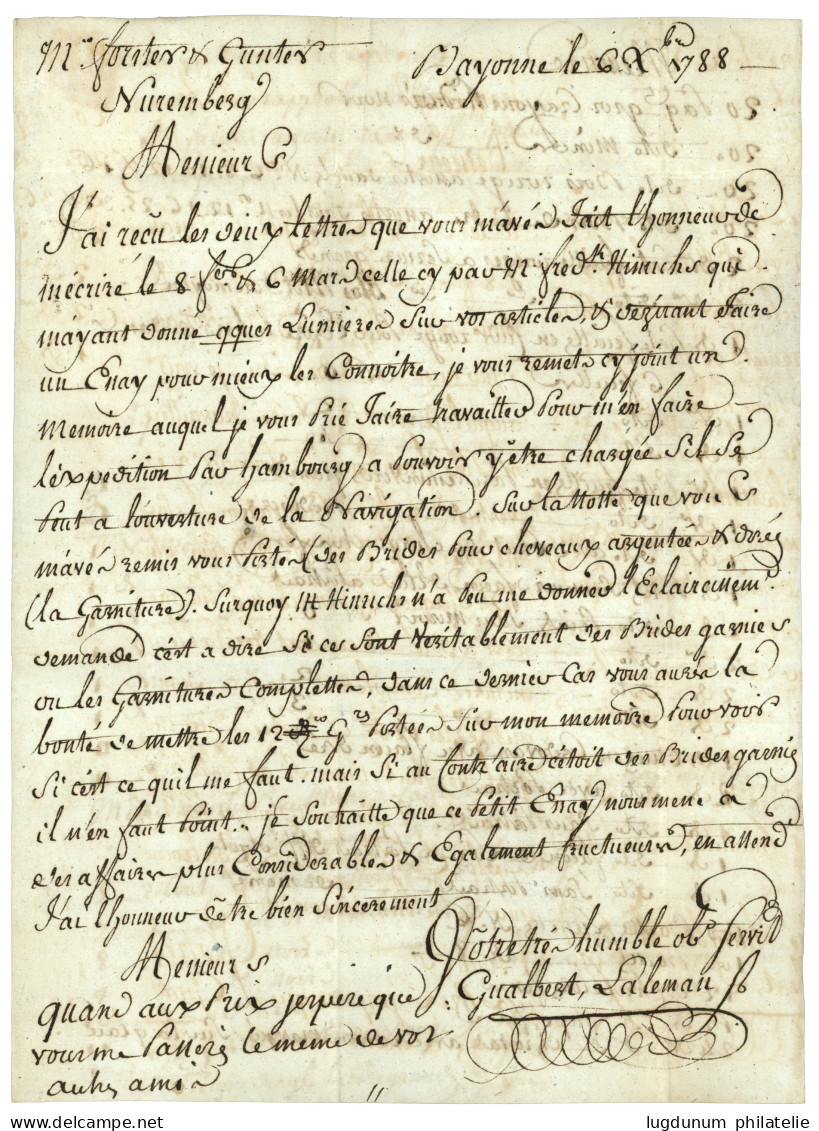 Mrs. forster & Gunter Bayonne le 6 Xbre 1788
Nuremberg
Messieurs
J'ai reçu les deux lettres que vous m'avés fait l'honneur de
m'écriré le 8 febr & 6 Mars celle cy par Mr. fredk Hinrichs qui
m'ayant donné qques Lumieres sur vos articles, & dezirant faire
un Essay pour mieux les Connoitre, je vous remets cy joint un
Memoire auquel je vous prié faire travailler pour m'en faire
l'expedition par hambourg a pouvoir y être chargée s'il se
peut a l'ouverture de la Navigation. Sur la Notte que vous
m'avés remis vous portés (des Brides pour chevaux argentées & dorés
(la Garniture). Surquoy M Hinrichs n'a peu me donner l'Eclaircissemt.
demandé c'est a dire si ces sont veritablement des Brides garnies
ou les Garnitures Complettes, dans ce dernier Cas vous aurés la
bonté de mettre les 12 Grs portées sur mon memoire pour voir
si c'est ce qu'il me faut. mais si au Contraire c'étoit des Brides garnies
il n'en faut point.. je souhaitte que ce petit Essay nous mene a
des affaires plus Considerables & Egalement fructueuses, en attendt
J'ai l'honneur d'être bien sincerement
Messieurs
Votre trés humble obt. servit
Gualbert, Laleman
quand aux Prix j'espere que
vous me passerés le meme de vos
autres amis
lugdunum philatelie